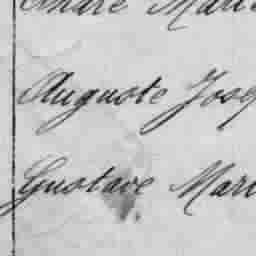 André Mari
Auguste Jose
Gustave Mari